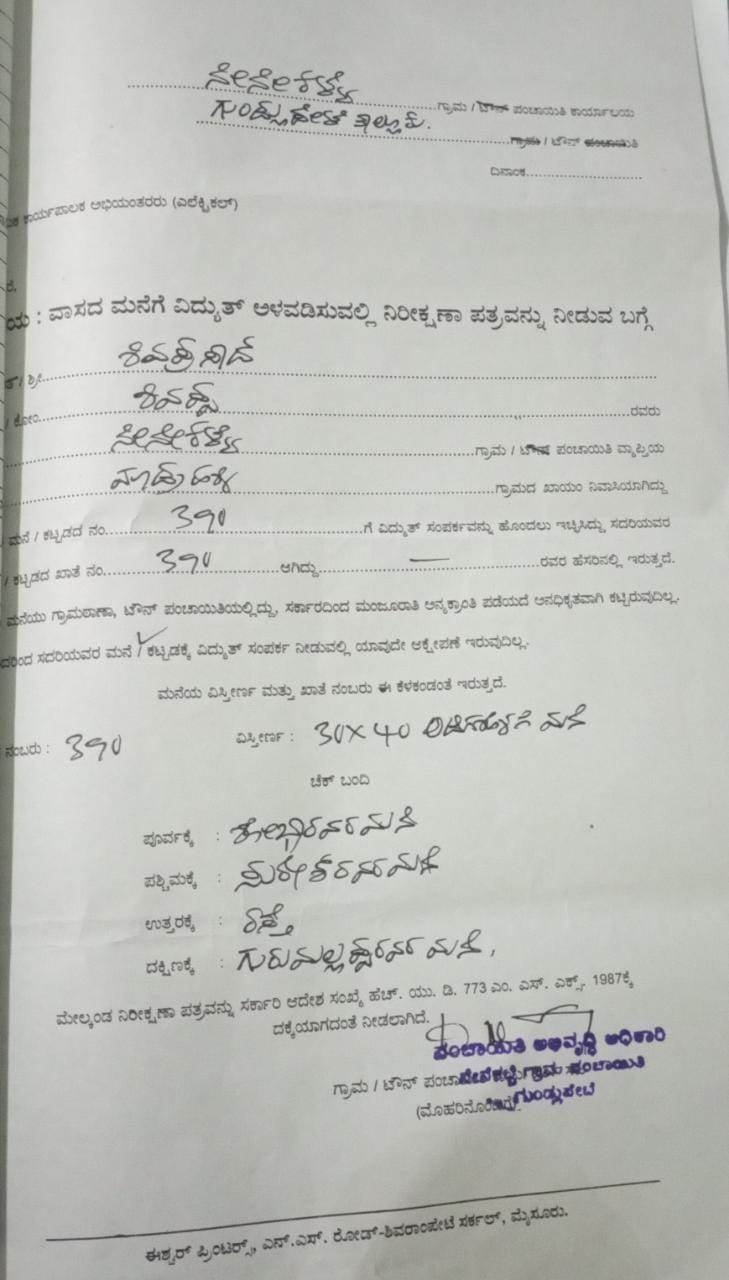 ಸೇನೇಕಟ್ಟೆ
...........................ಗ್ರಾಮ / ಟೌನ್ ಪಂಚಾಯಿತಿ ಕಾರ್ಯಾಲಯ
ಗುಂಡ್ಲುಪೇಟೆ ತಾಲ್ಲೂಕು.
...........................ಗ್ರಾಮ / ಟೌನ್ ಪಂಚಾಯಿತಿ
ದಿನಾಂಕ...........................
ಕಾರ್ಯಪಾಲಕ ಅಭಿಯಂತರರು (ಎಲೆಕ್ಟ್ರಿಕಲ್)
ರೆ,
ಯ : ವಾಸದ ಮನೆಗೆ ವಿದ್ಯುತ್ ಅಳವಡಿಸುವಲ್ಲಿ ನಿರೀಕ್ಷಣಾ ಪತ್ರವನ್ನು ನೀಡುವ ಬಗ್ಗೆ
/ ಶ್ರೀ........ ಶಿವಪ್ರಸಾದ್ ........
/ ಕೋಂ........ ಶಿವಪ್ಪ ........ರವರು
........ ಸೇನೇಕಟ್ಟೆ ........ಗ್ರಾಮ / ಟೌನ್ ಪಂಚಾಯಿತಿ ವ್ಯಾಪ್ತಿಯ
........ಗ್ರಾಮದ ಖಾಯಂ ನಿವಾಸಿಯಾಗಿದ್ದು
ಮನೆ / ಕಟ್ಟಡದ ನಂ........ 390 ........ಗೆ ವಿದ್ಯುತ್ ಸಂಪರ್ಕವನ್ನು ಹೊಂದಲು ಇಚ್ಛಿಸಿದ್ದು ಸದರಿಯವರ
/ ಕಟ್ಟಡದ ಖಾತೆ ನಂ........ 390 ........ಆಗಿದ್ದು........ — ........ರವರ ಹೆಸರಿನಲ್ಲಿ ಇರುತ್ತದೆ.
ಮನೆಯು ಗ್ರಾಮಠಾಣಾ, ಟೌನ್ ಪಂಚಾಯಿತಿಯಲ್ಲಿದ್ದು, ಸರ್ಕಾರದಿಂದ ಮಂಜೂರಾತಿ ಅನ್ಯಕ್ರಾಂತಿ ಪಡೆಯದೆ ಅನಧಿಕೃತವಾಗಿ ಕಟ್ಟಿರುವುದಿಲ್ಲ.
ದರಿಂದ ಸದರಿಯವರ ಮನೆ / ಕಟ್ಟಡಕ್ಕೆ ವಿದ್ಯುತ್ ಸಂಪರ್ಕ ನೀಡುವಲ್ಲಿ ಯಾವುದೇ ಆಕ್ಷೇಪಣೆ ಇರುವುದಿಲ್ಲ.
ಮನೆಯ ವಿಸ್ತೀರ್ಣ ಮತ್ತು ಖಾತೆ ನಂಬರು ಈ ಕೆಳಕಂಡಂತೆ ಇರುತ್ತದೆ.
ನಂಬರು : 390 ವಿಸ್ತೀರ್ಣ : 30 X 40 ಮನೆ
ಚೆಕ್ ಬಂದಿ
ಪೂರ್ವಕ್ಕೆ : ಶೋಭಾರವರ ಮನೆ
ಪಶ್ಚಿಮಕ್ಕೆ : ಸುರೇಶರವರ ಮನೆ
ಉತ್ತರಕ್ಕೆ : ರಸ್ತೆ
ದಕ್ಷಿಣಕ್ಕೆ : ಗುರುಮಲ್ಲಪ್ಪರವರ ಮನೆ,
ಮೇಲ್ಕಂಡ ನಿರೀಕ್ಷಣಾ ಪತ್ರವನ್ನು ಸರ್ಕಾರಿ ಆದೇಶ ಸಂಖ್ಯೆ ಹೆಚ್. ಯು. ಡಿ. 773 ಎಂ. ಎಸ್. ಎಕ್ಸ್. 1987ಕ್ಕೆ
ದಕ್ಕೆಯಾಗದಂತೆ ನೀಡಲಾಗಿದೆ.
ಪಂಚಾಯಿತಿ ಅಭಿವೃದ್ಧಿ ಅಧಿಕಾರಿ
ಗ್ರಾಮ ಪಂಚಾಯಿತಿ
ಗುಂಡ್ಲುಪೇಟೆ
ಗ್ರಾಮ / ಟೌನ್
(ಮೊಹರಿನೊಂದಿಗೆ)
ಈಶ್ವರ್ ಪ್ರಿಂಟರ್ಸ್, ಎನ್.ಎಸ್. ರೋಡ್-ಶಿವರಾಂಪೇಟೆ ಸರ್ಕಲ್, ಮೈಸೂರು.